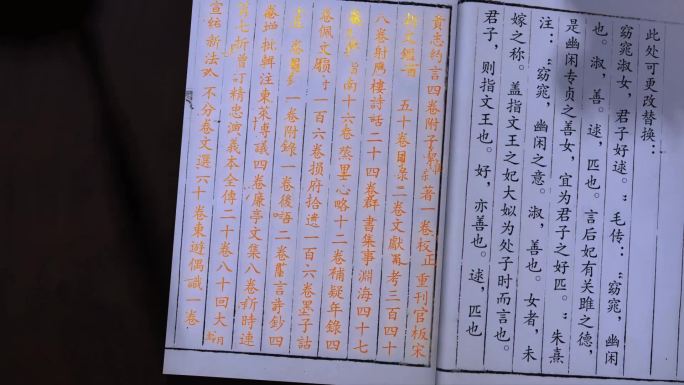 此处可更改替换：
窈窕淑女，君子好逑。”毛传：“窈窕，幽闲
也。淑，善。逑，匹也。言后妃有关雎之德，
是幽闲专贞之善女，宜为君子之好匹。”朱熹
注：“窈窕，幽闲之意。淑，善也。女者，未
嫁之称。盖指文王之妃大姒为处子时而言也。
君子，则指文王也。好，亦善也。逑，匹也
貢志約言四卷附子 著一卷校正 重刊官板宋
五十卷目錄二卷文獻 考三百四十
八卷射鷹樓詩話二十四卷群書集事淵海四十七
指南十六卷蒸里心略十二卷補疑年錄四
卷佩文 一百六卷損府拾遺一百六卷墨子詁
一卷附錄一卷後語二卷 言詩鈔四
批輯注東萊博議四卷廉亭文集八卷 時連
第七折曾訂精忠演義本全傳二十卷八十回大
宣 新法 不分卷文選六十卷東遊偶識一卷